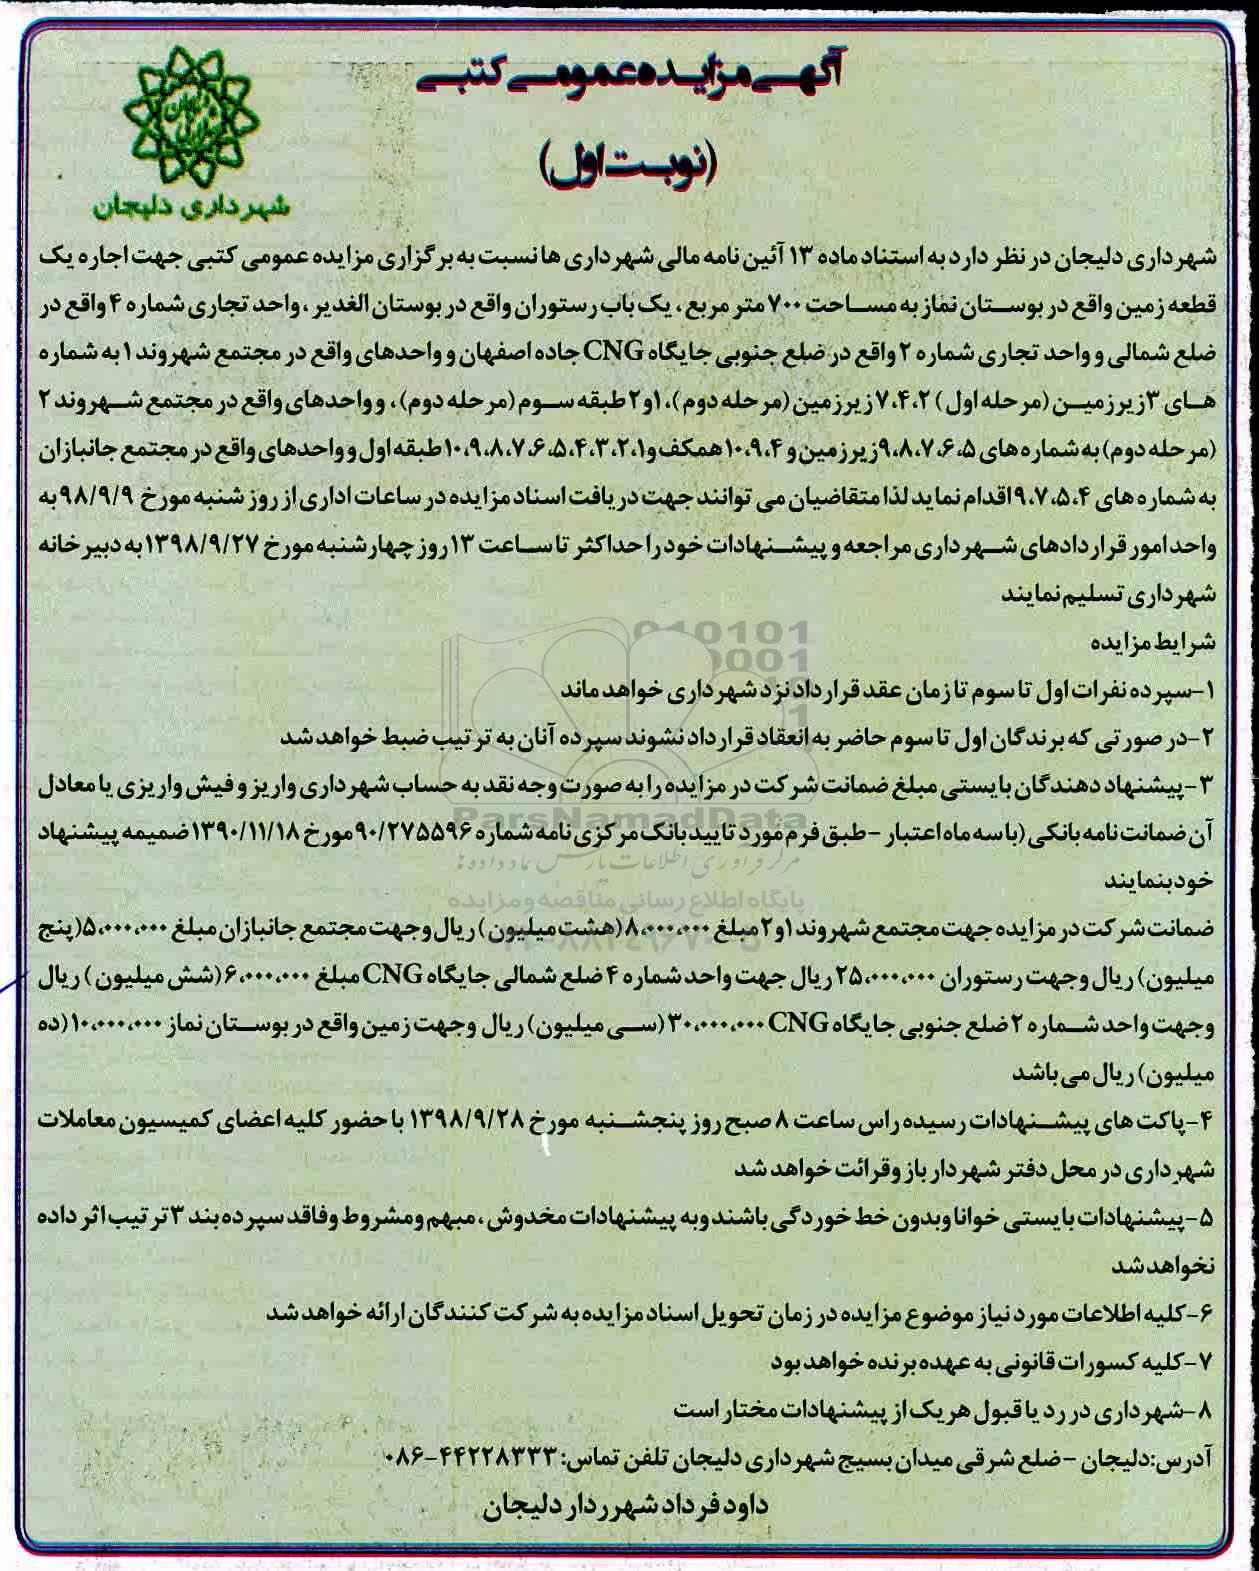 آگهی مزایده عمومی کتبی
(نوبت اول)
شهرداری دلیجان
شهرداری دلیجان در نظر دارد به استناد ماده ۱۳ آئین نامه مالی شهرداری ها نسبت به برگزاری مزایده عمومی کتبی جهت اجاره یک
قطعه زمین واقع در بوستان نماز به مساحت ۷۰۰ متر مربع، یک باب رستوران واقع در بوستان الغدیر، واحد تجاری شماره ۴ واقع در
ضلع شمالی و واحد تجاری شماره ۲ واقع در ضلع جنوبی جایگاه CNG جاده اصفهان و واحدهای واقع در مجتمع شهروند ۱ به شماره
های ۳ زیرزمین (مرحله اول) ۷،۴،۲ زیرزمین (مرحله دوم)، ۱و۲ طبقه سوم (مرحله دوم)، و واحدهای واقع در مجتمع شهروند ۲
(مرحله دوم) به شماره های ۹،۸،۷،۶،۵ زیرزمین و ۱۰،۹،۴ همکف و ۱۰،۹،۸،۷،۶،۵،۴،۳،۲،۱ طبقه اول و واحدهای واقع در مجتمع جانبازان
به شماره های ۹،۷،۵،۴ اقدام نماید لذا متقاضیان می توانند جهت دریافت اسناد مزایده در ساعات اداری از روز شنبه مورخ ۹۸/۹/۹ به
واحد امور قراردادهای شهرداری مراجعه و پیشنهادات خود را حداکثر تا ساعت ۱۳ روز چهارشنبه مورخ ۱۳۹۸/۹/۲۷ به دبیرخانه
شهرداری تسلیم نمایند
شرایط مزایده
۱-سپرده نفرات اول تا سوم تا زمان عقد قرارداد نزد شهرداری خواهد ماند
۲-در صورتی که برندگان اول تا سوم حاضر به انعقاد قرارداد نشوند سپرده آنان به ترتیب ضبط خواهد شد
۳-پیشنهاد دهندگان بایستی مبلغ ضمانت شرکت در مزایده را به صورت وجه نقد به حساب شهرداری واریز و فیش واریزی یا معادل
آن ضمانت نامه بانکی (با سه ماه اعتبار -طبق فرم مورد تایید بانک مرکزی نامه شماره ۹۰/۲۷۵۵۹۶ مورخ ۱۳۹۰/۱۱/۱۸ ضمیمه پیشنهاد
خود بنمایند
ضمانت شرکت در مزایده جهت مجتمع شهروند ۱و۲ مبلغ ۸،۰۰۰،۰۰۰ (هشت میلیون) ریال وجهت مجتمع جانبازان مبلغ ۵،۰۰۰،۰۰۰ (پنج
میلیون) ریال وجهت رستوران ۲۵،۰۰۰،۰۰۰ ریال جهت واحد شماره ۴ ضلع شمالی جایگاه CNG مبلغ ۶،۰۰۰،۰۰۰ (شش میلیون) ریال
وجهت واحد شماره ۲ ضلع جنوبی جایگاه CNG ۳۰،۰۰۰،۰۰۰ (سی میلیون) ریال وجهت زمین واقع در بوستان نماز ۱۰،۰۰۰،۰۰۰ (ده
میلیون) ریال می باشد
۴-پاکت های پیشنهادات رسیده راس ساعت ۸ صبح روز پنجشنبه مورخ ۱۳۹۸/۹/۲۸ با حضور کلیه اعضای کمیسیون معاملات
شهرداری در محل دفتر شهردار باز وقرائت خواهد شد
۵-پیشنهادات بایستی خوانا وبدون خط خوردگی باشند وبه پیشنهادات مخدوش، مبهم ومشروط وفاقد سپرده بند ۳ ترتیب اثر داده
نخواهد شد
۶-کلیه اطلاعات مورد نیاز موضوع مزایده در زمان تحویل اسناد مزایده به شرکت کنندگان ارائه خواهد شد
۷-کلیه کسورات قانونی به عهده برنده خواهد بود
۸-شهرداری در رد یا قبول هر یک از پیشنهادات مختار است
آدرس:دلیجان -ضلع شرقی میدان بسیج شهرداری دلیجان تلفن تماس: ۴۴۲۲۸۳۳۳-۰۸۶
داود فرداد شهرردار دلیجان
ParsNamadData
مرکز فرآوری اطلاعات پارس نماد داده ها
پایگاه اطلاع رسانی مناقصه و مزایده